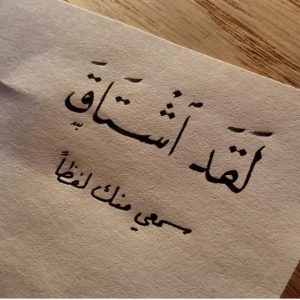 لَقَد اَشْتَاقَِ
سمعي منك لفظاً